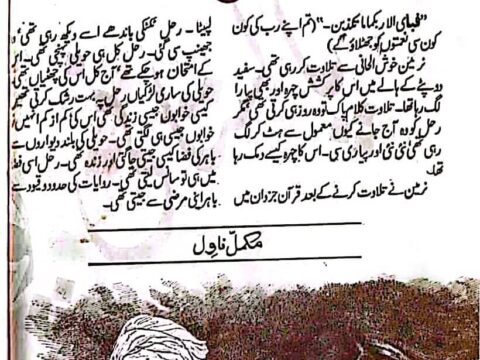 "فبای الاء ربکما تکذبن۔" (تم اپنے رب کی کون
کون سی نعمتوں کو جھٹلاؤ گے)
نرمین خوش الحانی سے تلاوت کر رہی تھی۔ سفید
دوپٹے کے ہالے میں اس کا پرکشش چہرہ اور بھی پیارا
لگ رہا تھا۔ تلاوت کلام پاک تو وہ روز ہی کرتی تھی مگر
رحل کو وہ آج جانے کیوں معمول سے ہٹ کر لگ
رہی تھی نئی نئی اور پیاری سی۔ اس کا چہرہ کیسے دمک رہا
تھا۔
نرمین نے تلاوت کرنے کے بعد قرآن جزدان میں
لپیٹا۔ رحل ٹکٹکی باندھے اسے دیکھ رہی تھی،
جھینپ سی گئی۔ رحل کل ہی حویلی پہنچی تھی۔ اس
کے امتحان ہو چکے تھے آج کل اس کی چھٹیاں
حویلی کی ساری لڑکیاں رحل پہ بہت رشک کرتی
کیسی خوابوں جیسی زندگی تھی اس کی کم از کم انہیں
خوابوں جیسی ہی لگتی تھی۔ حویلی کی بلند دیواروں
باہر کی فضا کیسی جیتی جاگتی اور زندہ تھی۔ رحل اسی
میں ہی تو سانس لیتی تھی۔ روایات کی حدود و قیود سے
باہر اپنی مرضی سے جیتی تھی۔
مکمل ناول